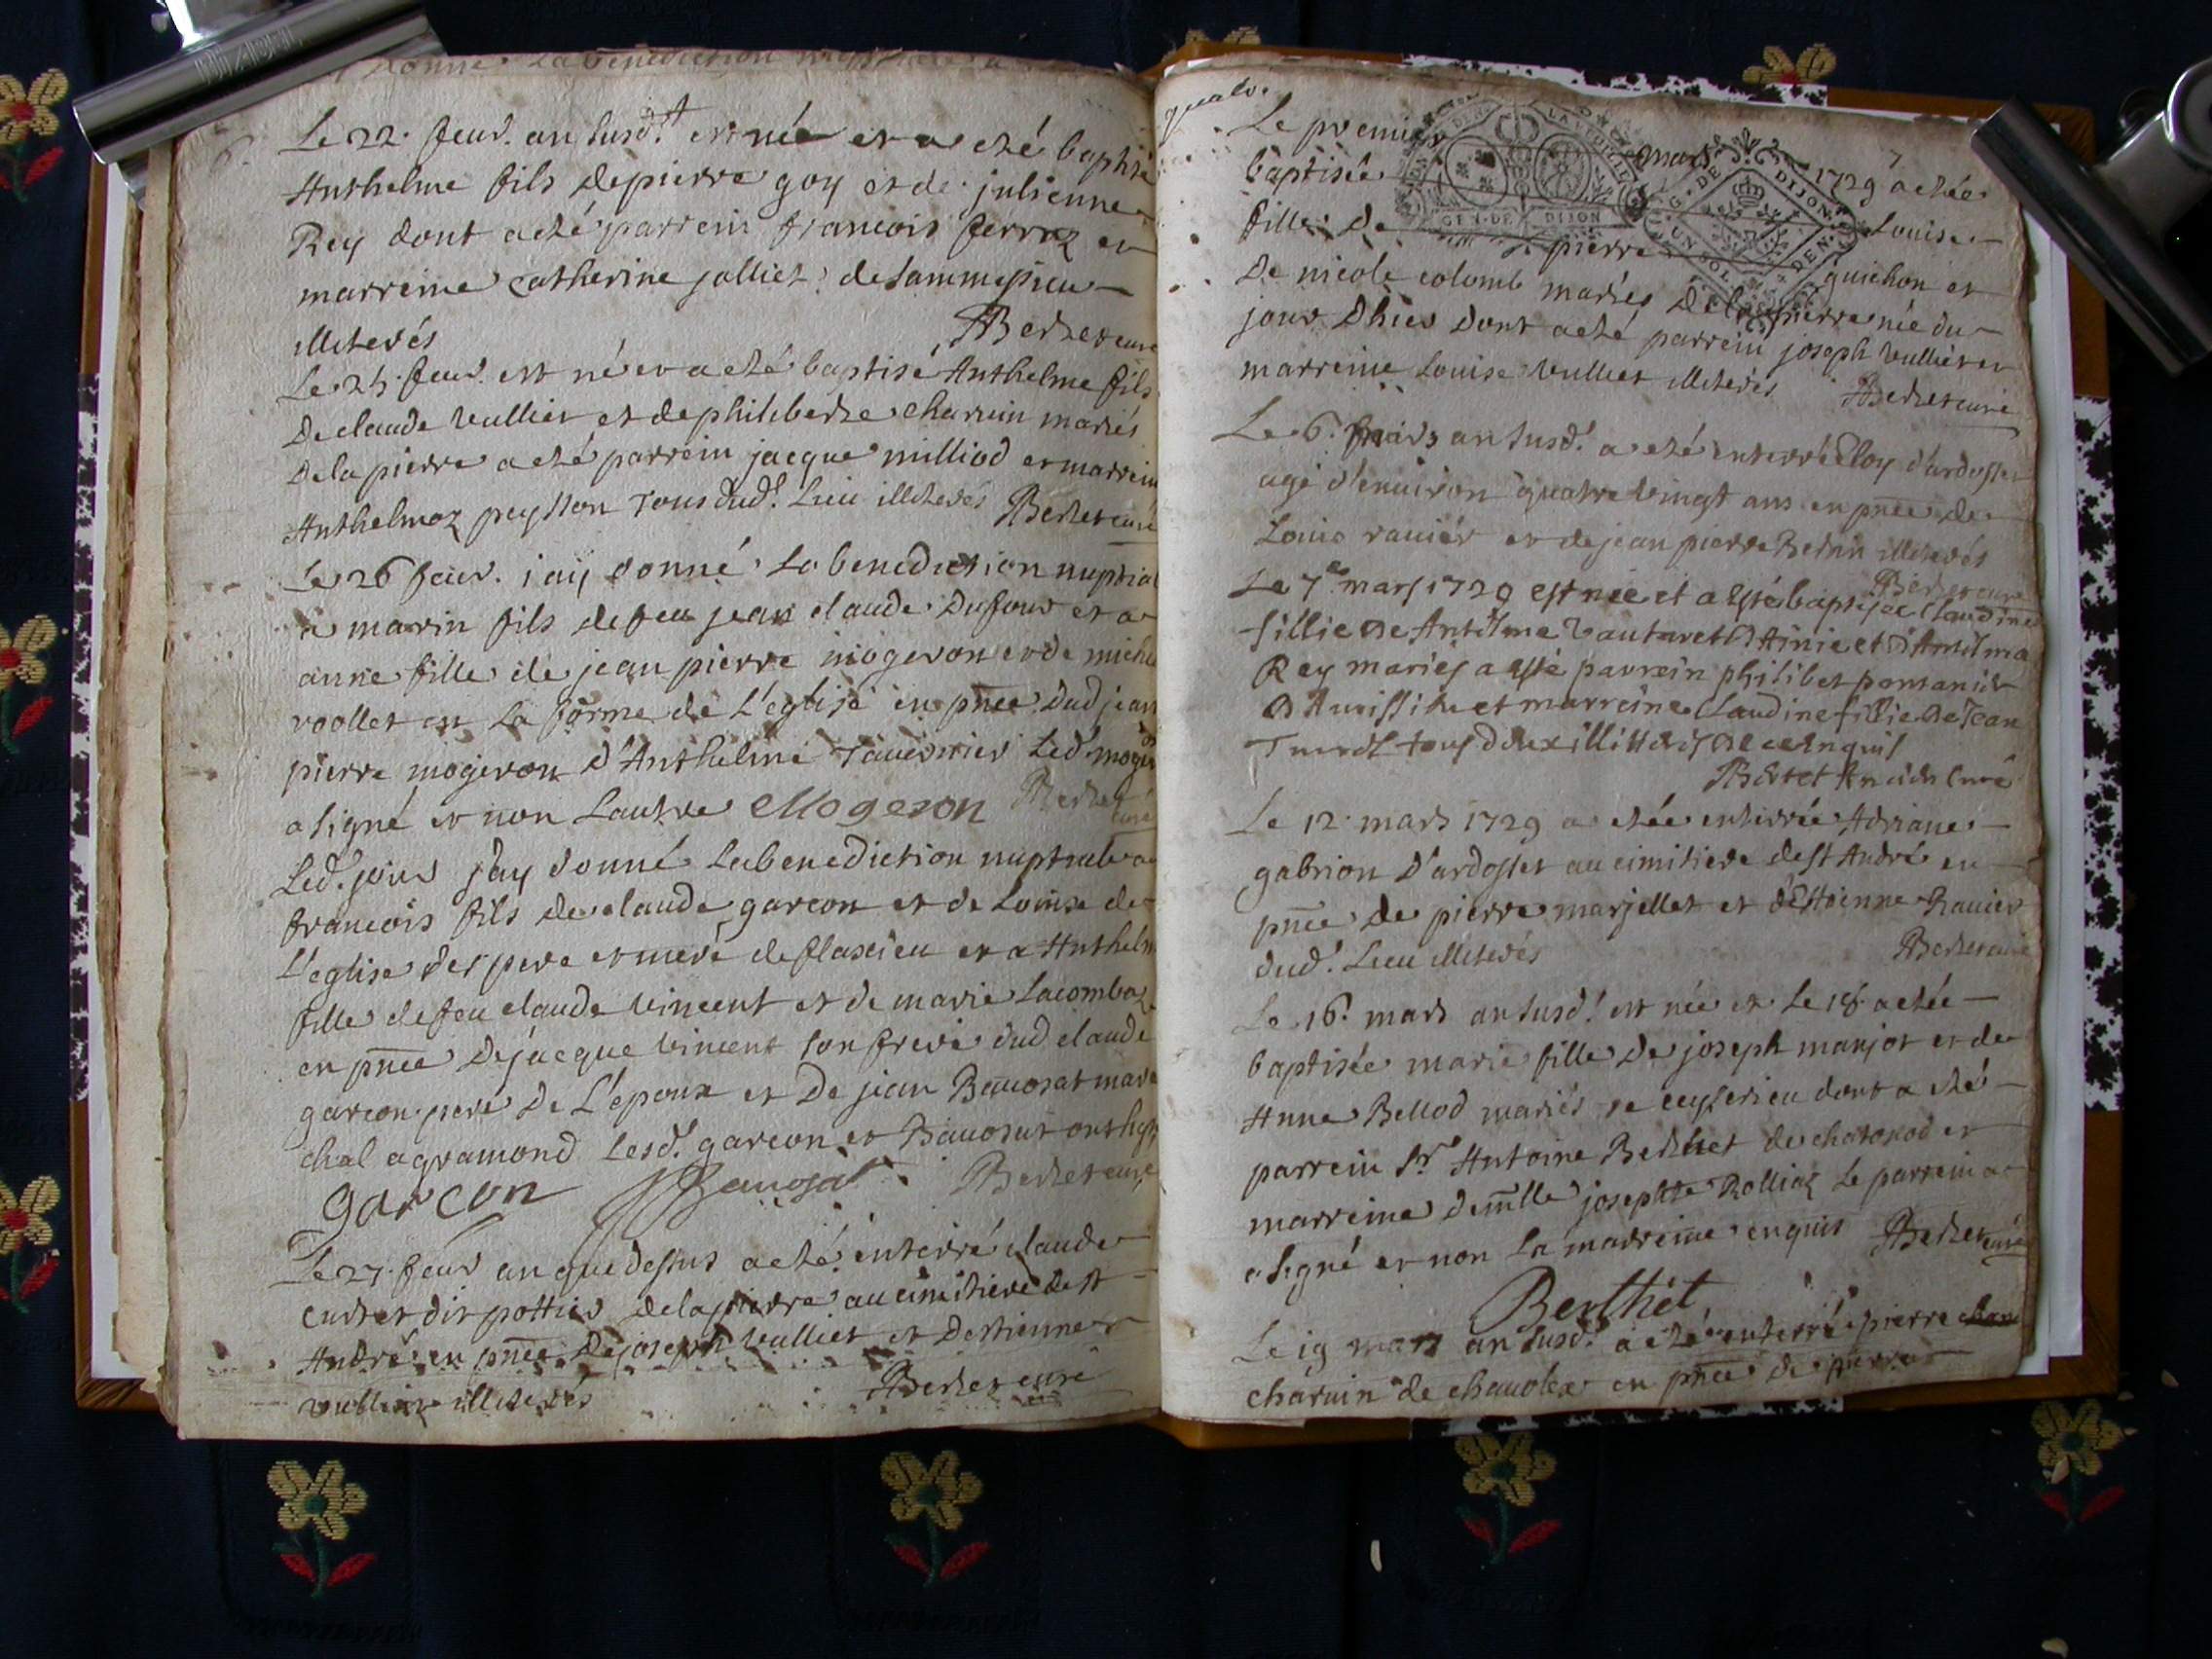 6.
Le 22. feur. an susd.t est née et a eté baptisé
Anthelme fils de pierre goy et de julienne
Rey dont a eté parrein francois ferraz et
marreine catherine jolliet de sammepieu
illiterés Berthet curé
Le 25. feur. est né et a eté baptisé Anthelme fils
De claude vulliet et de philiberte charuin mariés
De la pierre a eté parrein jacque milliod et marrein
Anthelmaz peysson Tous dud.t Lieu illiterés Berthet curé
Le 26 feur. iay donné La benediction nuptial
a marin fils de feu jean claude Dufour et a
anne fille de jean pierre mogeron et de miche
voollet en La forme de L'eglise en pnce Dud jean
pierre mogeron d'Anthelme Tauernier Led. moger
a signé et non Lautre Mogeron Berthet curé
Led. jour j'ay donné La benediction nuptiale a
francois fils de claude garcon et de Louise de
L'eglise ses pere et mere de flaxieu et a Anthelm
fille de feu claude vincent et de marie Lacombaz
en pnce De jacque vincent son frere dud claude
garcon pere De L'epoux et De jean Bauosat mare
chal a gramond Lesd. garcon et Bauosat ont sig
garcon J Bauosat Berthet curé
Le 27. feur an que dessus a eté enterré claude
curtet dit pottier de la pierre au cimitiere de st
André en pnce De joseph vulliet et Destienne
vulliet illiterés Berthet curé
Le premier mars 1729 a etée
baptisée Louise
fille De pierre guichon et
De nicole colomb mariés De la pierre née du
jour D'hier Dont a eté parrein joseph vulliet et
marreine Louise vulliet illiterés Berthet curé
Le 6. mars an susd.t a eté enterré Eloy d'ardosset
agé d'enuiron quatre vingt ans en pnce de
Louis rauier et de jean pierre Bertin illiterés
Berthet curé
Le 7e mars 1729 est née et a esté baptisée Claudine
fillie de Antelme Vautaret et d'Antelma
Rey mariés a esté parrein philibet
et marreine Claudine fillie de Jean
tous deux illitterés de ce enquis
Bertet Ancien Curé
Le 12. mars 1729 a etée enterrée Adriane
gabrion D'ardosset au cimitiere de st André en
pnce de pierre marjollet et d'Etienne Rauier
dud.t Lieu illiterés Berthet curé
Le 16. mars an susd.t est née et Le 18 a etée
baptisée marie fille De joseph marjot et de
Anne Bellod mariés de ceyserieu dont a eté
parrein Sr Antoine Berthet de chatonod et
marreine demlle josephte Rolliaz Le parrein a
signé et non La marreine enquis Berthet curé
Berthet
Le 19 mars an susd.t a eté enterré pierre
charuin de chauolex en pnce de pierre
GEN. DE DIJON
G. DE DIJON
UN SOL